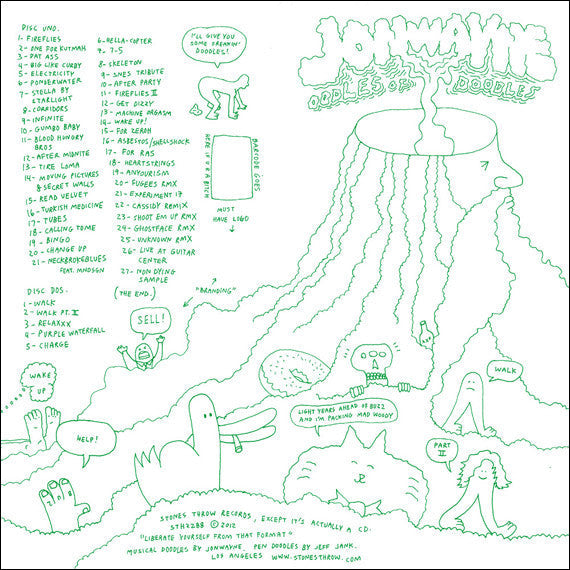 DISC UNO.
1- FIREFLIES
2- ONE FOR KUTMAH
3- DAT ASS
4- BIG LIKE CURBY
5- ELECTRICITY
6- POWDERWATER
7- STELLA BY
STARLIGHT
8- CORRIDORS
9- INFINITE
10- GUMBO BABY
11- BLOOD HUNGRY
BROS
12- AFTER MIDNITE
13- TIRE LOMA
14- MOVING PICTURES
& SECRET WALLS
15- READ VELVET
16- TURKISH MEDICINE
17- TUBES
18- CALLING TOME
19- BINGO
20- CHANGE UP
21- NECKBROKEBLUES
FEAT. MNDSGN
DISC DOS.
1- WALK
2- WALK PT. II
3- RELAXXX
4- PURPLE WATERFALL
5- CHARGE
6- RELLA-COPTER
7- 7-5
8- SKELETON
9- SNES TRIBUTE
10- AFTER PARTY
11- FIREFLIES II
12- GET DIZZY
13- MACHINE ORGASM
14- WAKE UP!
15- FOR ZEROH
16- ASBESTOS/SHELLSHOCK
17- FOR RAS
18- HEARTSTRINGS
19- ANYOURISM
20- FUGEES RMX
21- EXPERIMENT 17
22- CASSIDY REMIX
23- SHOOT EM UP RMX
24- GHOSTFACE RMX
25- UNKNOWN RMX
26- LIVE AT GUITAR
CENTER
27- NON DYING
SAMPLE
(THE END.)
I'LL GIVE YOU
SOME FREAKIN'
DOODLES!
BARCODE GOES
HERE IF U R A BITCH
MUST
HAVE LOGO
"BRANDING"
JONWAYNE
OODLES OF DOODLES
SELL!
WAKE
UP
HELP!
WALK
LIGHT YEARS AHEAD OF BUZZ
AND I'M PACKING MAD WOODY
PART
II
STONES THROW RECORDS, EXCEPT IT'S ACTUALLY A CD.
STH2288 © 2012
"LIBERATE YOURSELF FROM THAT FORMAT"
MUSICAL DOODLES BY JONWAYNE. PEN DOODLES BY JEFF JANK.
LOS ANGELES WWW.STONESTHROW.COM